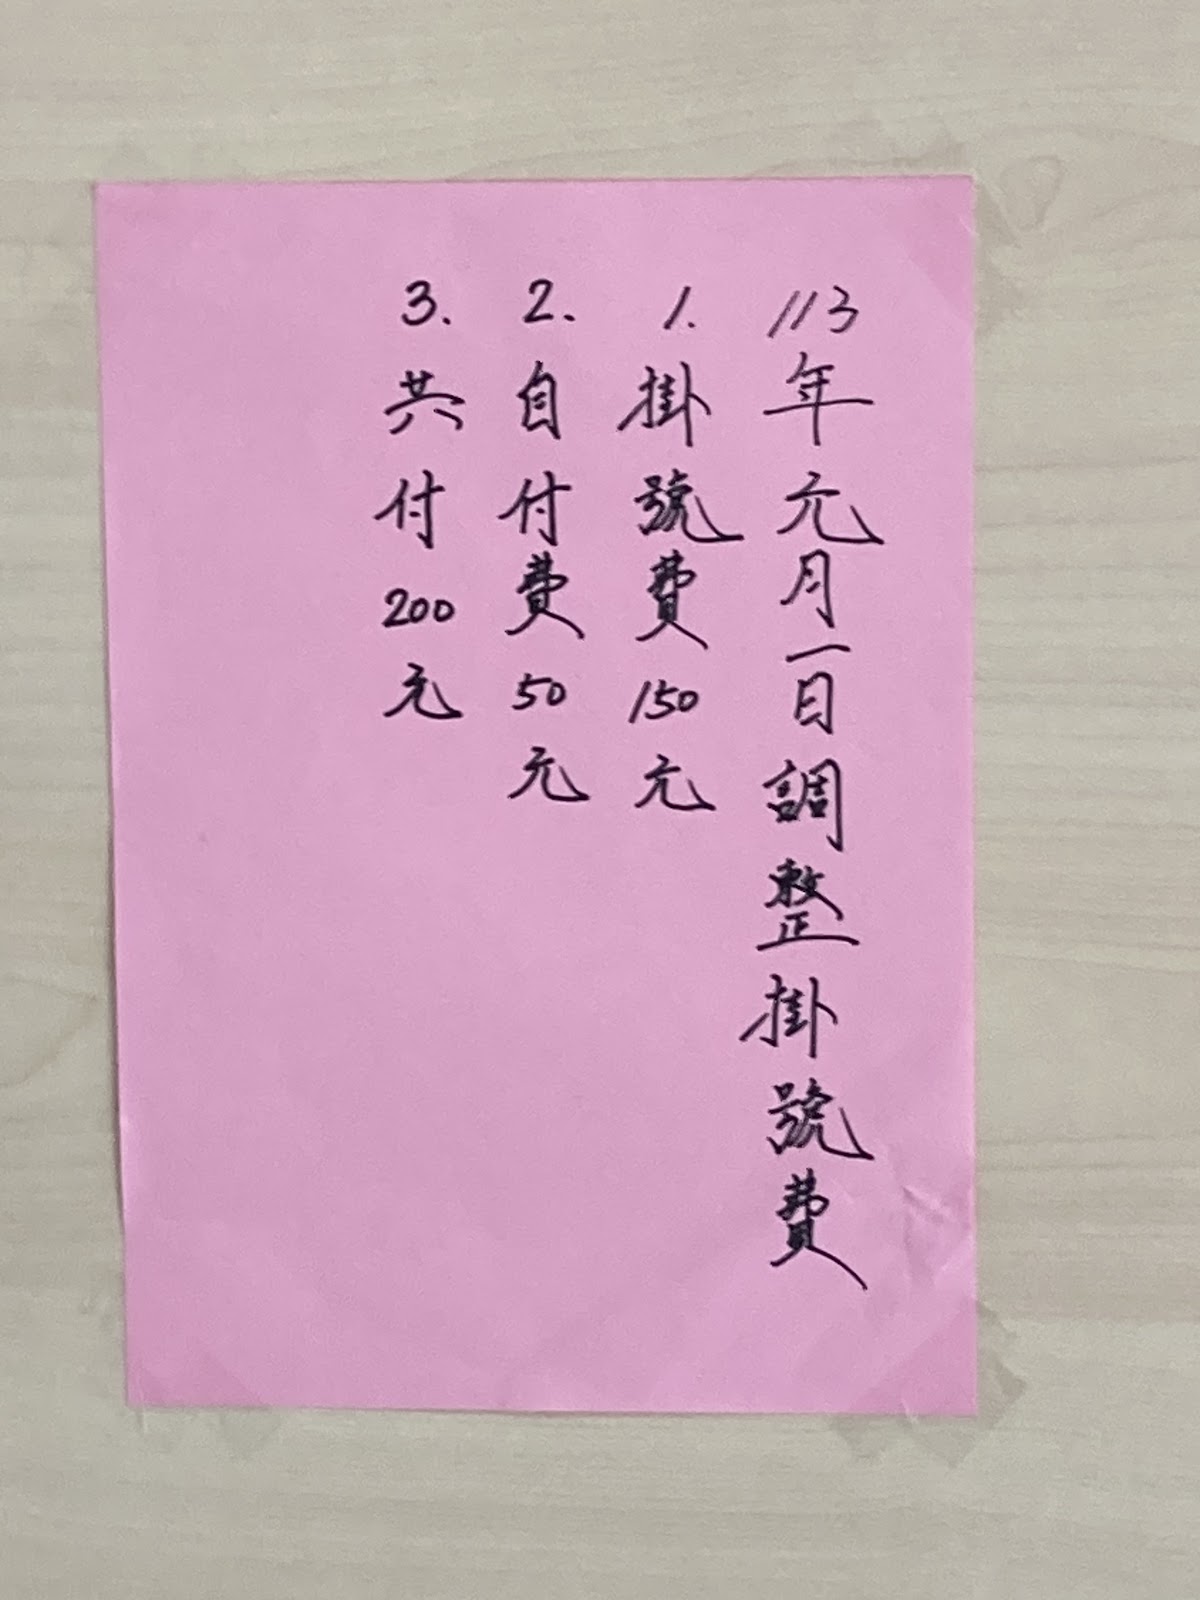 113年元月一日調整掛號費
1.掛號費150元
2.自付費50元
3.共付200元